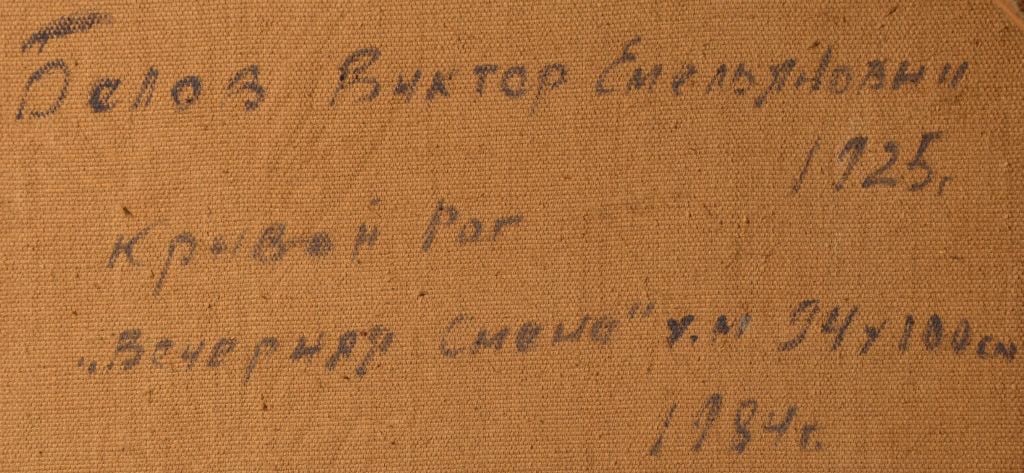 Белов Виктор Емельянович
1925г
Кривой Рог
„Вечерняя Смена" х.м 94х100см
1984г.